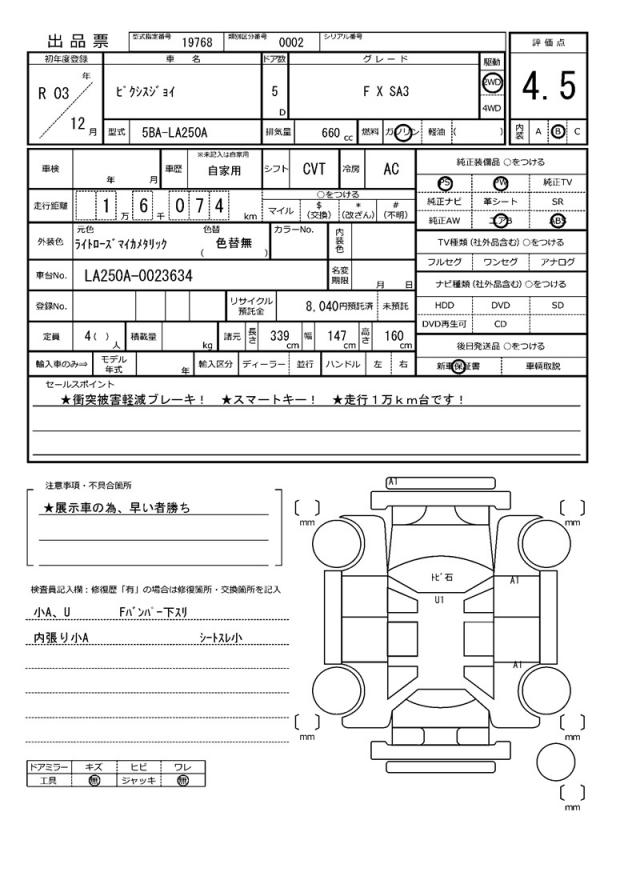 出品票 型式指定番号 19768 類別区分番号 0002 シリアル番号
評価点
4.5
内装 A B C
初年度登録 車名 ドア数 グレード 駆動
R 03 年 12 月 ﾋﾟｸｼｽｼﾞｮｲ 5 D F X SA3 2WD 4WD
型式 5BA-LA250A 排気量 660 cc 燃料 ガソリン 軽油 ( )
車検 年 月 車歴 ※未記入は自家用 自家用 シフト CVT 冷房 AC
走行距離 1 万 6 千 0 7 4 km ○をつける
マイル $ (交換) * (改ざん) # (不明)
外装色 元色 ﾗｲﾄﾛｰｽﾞﾏｲｶﾒﾀﾘｯｸ 色替 ( 色替無 ) カラーNo. 内装色
車台No. LA250A-0023634 名変期限 月 日
登録No. リサイクル預託金 8,040円預託済 未預託
定員 4( ) 人 積載量 kg 諸元 長さ 339 cm 幅 147 cm 高さ 160 cm
輸入車のみ⇒ モデル年式 年 輸入区分 ディーラー 並行 ハンドル 左 右
純正装備品 ○をつける
PS PW 純正TV
純正ナビ 革シート SR
純正AW エアB ABS
TV種類(社外品含む)○をつける
フルセグ ワンセグ アナログ
ナビ種類(社外品含む)○をつける
HDD DVD SD
DVD再生可 CD
後日発送品 ○をつける
新車保証書 車輌取説
セールスポイント
★衝突被害軽減ブレーキ！ ★スマートキー！ ★走行１万ｋｍ台です！
注意事項・不具合箇所
★展示車の為、早い者勝ち
検査員記入欄：修復歴「有」の場合は修復箇所・交換箇所を記入
小A、U Fﾊﾞﾝﾊﾟｰ下ｽﾘ
内張り小A ｼｰﾄｽﾚ小
ドアミラー キズ ヒビ ワレ
工具 無 ジャッキ 無
A1
[ ] mm [ ] mm
ﾄﾋﾞ石
U1
A1
A1
[ ] mm [ ] mm
[ ] mm